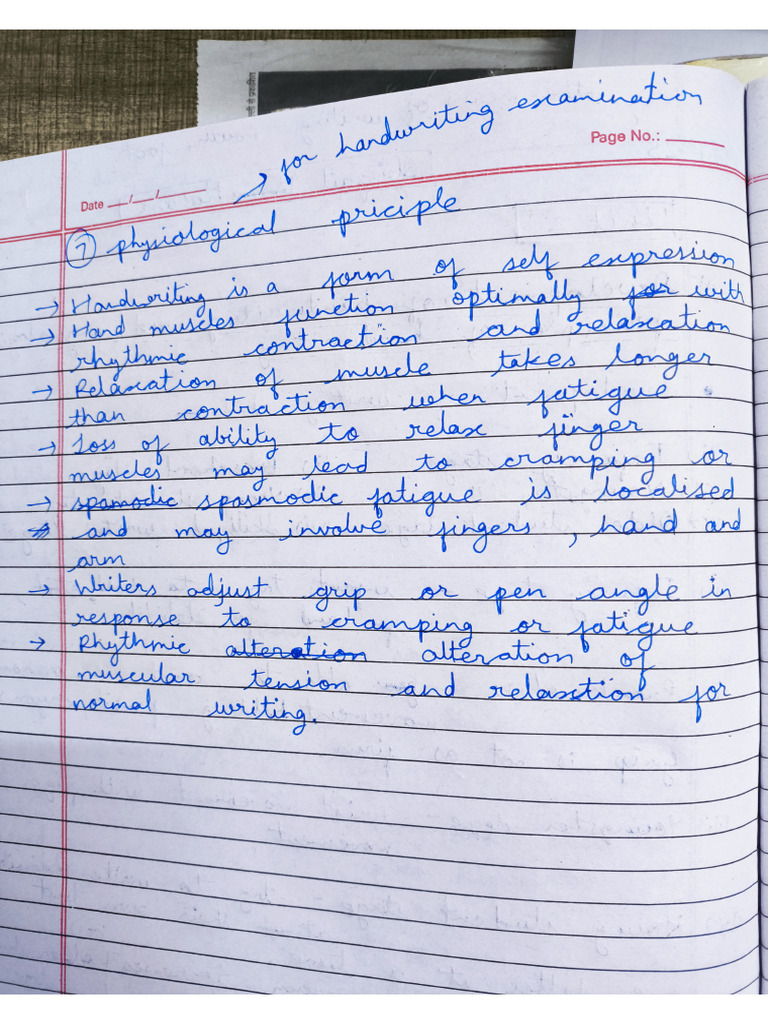 for handwriting examination
Page No.:
Date __/__/____
⑦ physiological priciple
→ Handwriting is a form of self expression
→ Hand muscles function optimally for with
rhythmic contraction and relaxation
→ Relaxation of muscle takes longer
than contraction when fatigue
→ Loss of ability to relax finger
muscles may lead to cramping or
→ spamodic spasmodic fatigue is localised
and may involve fingers, hand and
arm
→ Writers adjust grip or pen angle in
response to cramping or fatigue
→ Rhythmic alteration alteration of
muscular tension and relaxtion for
normal writing.